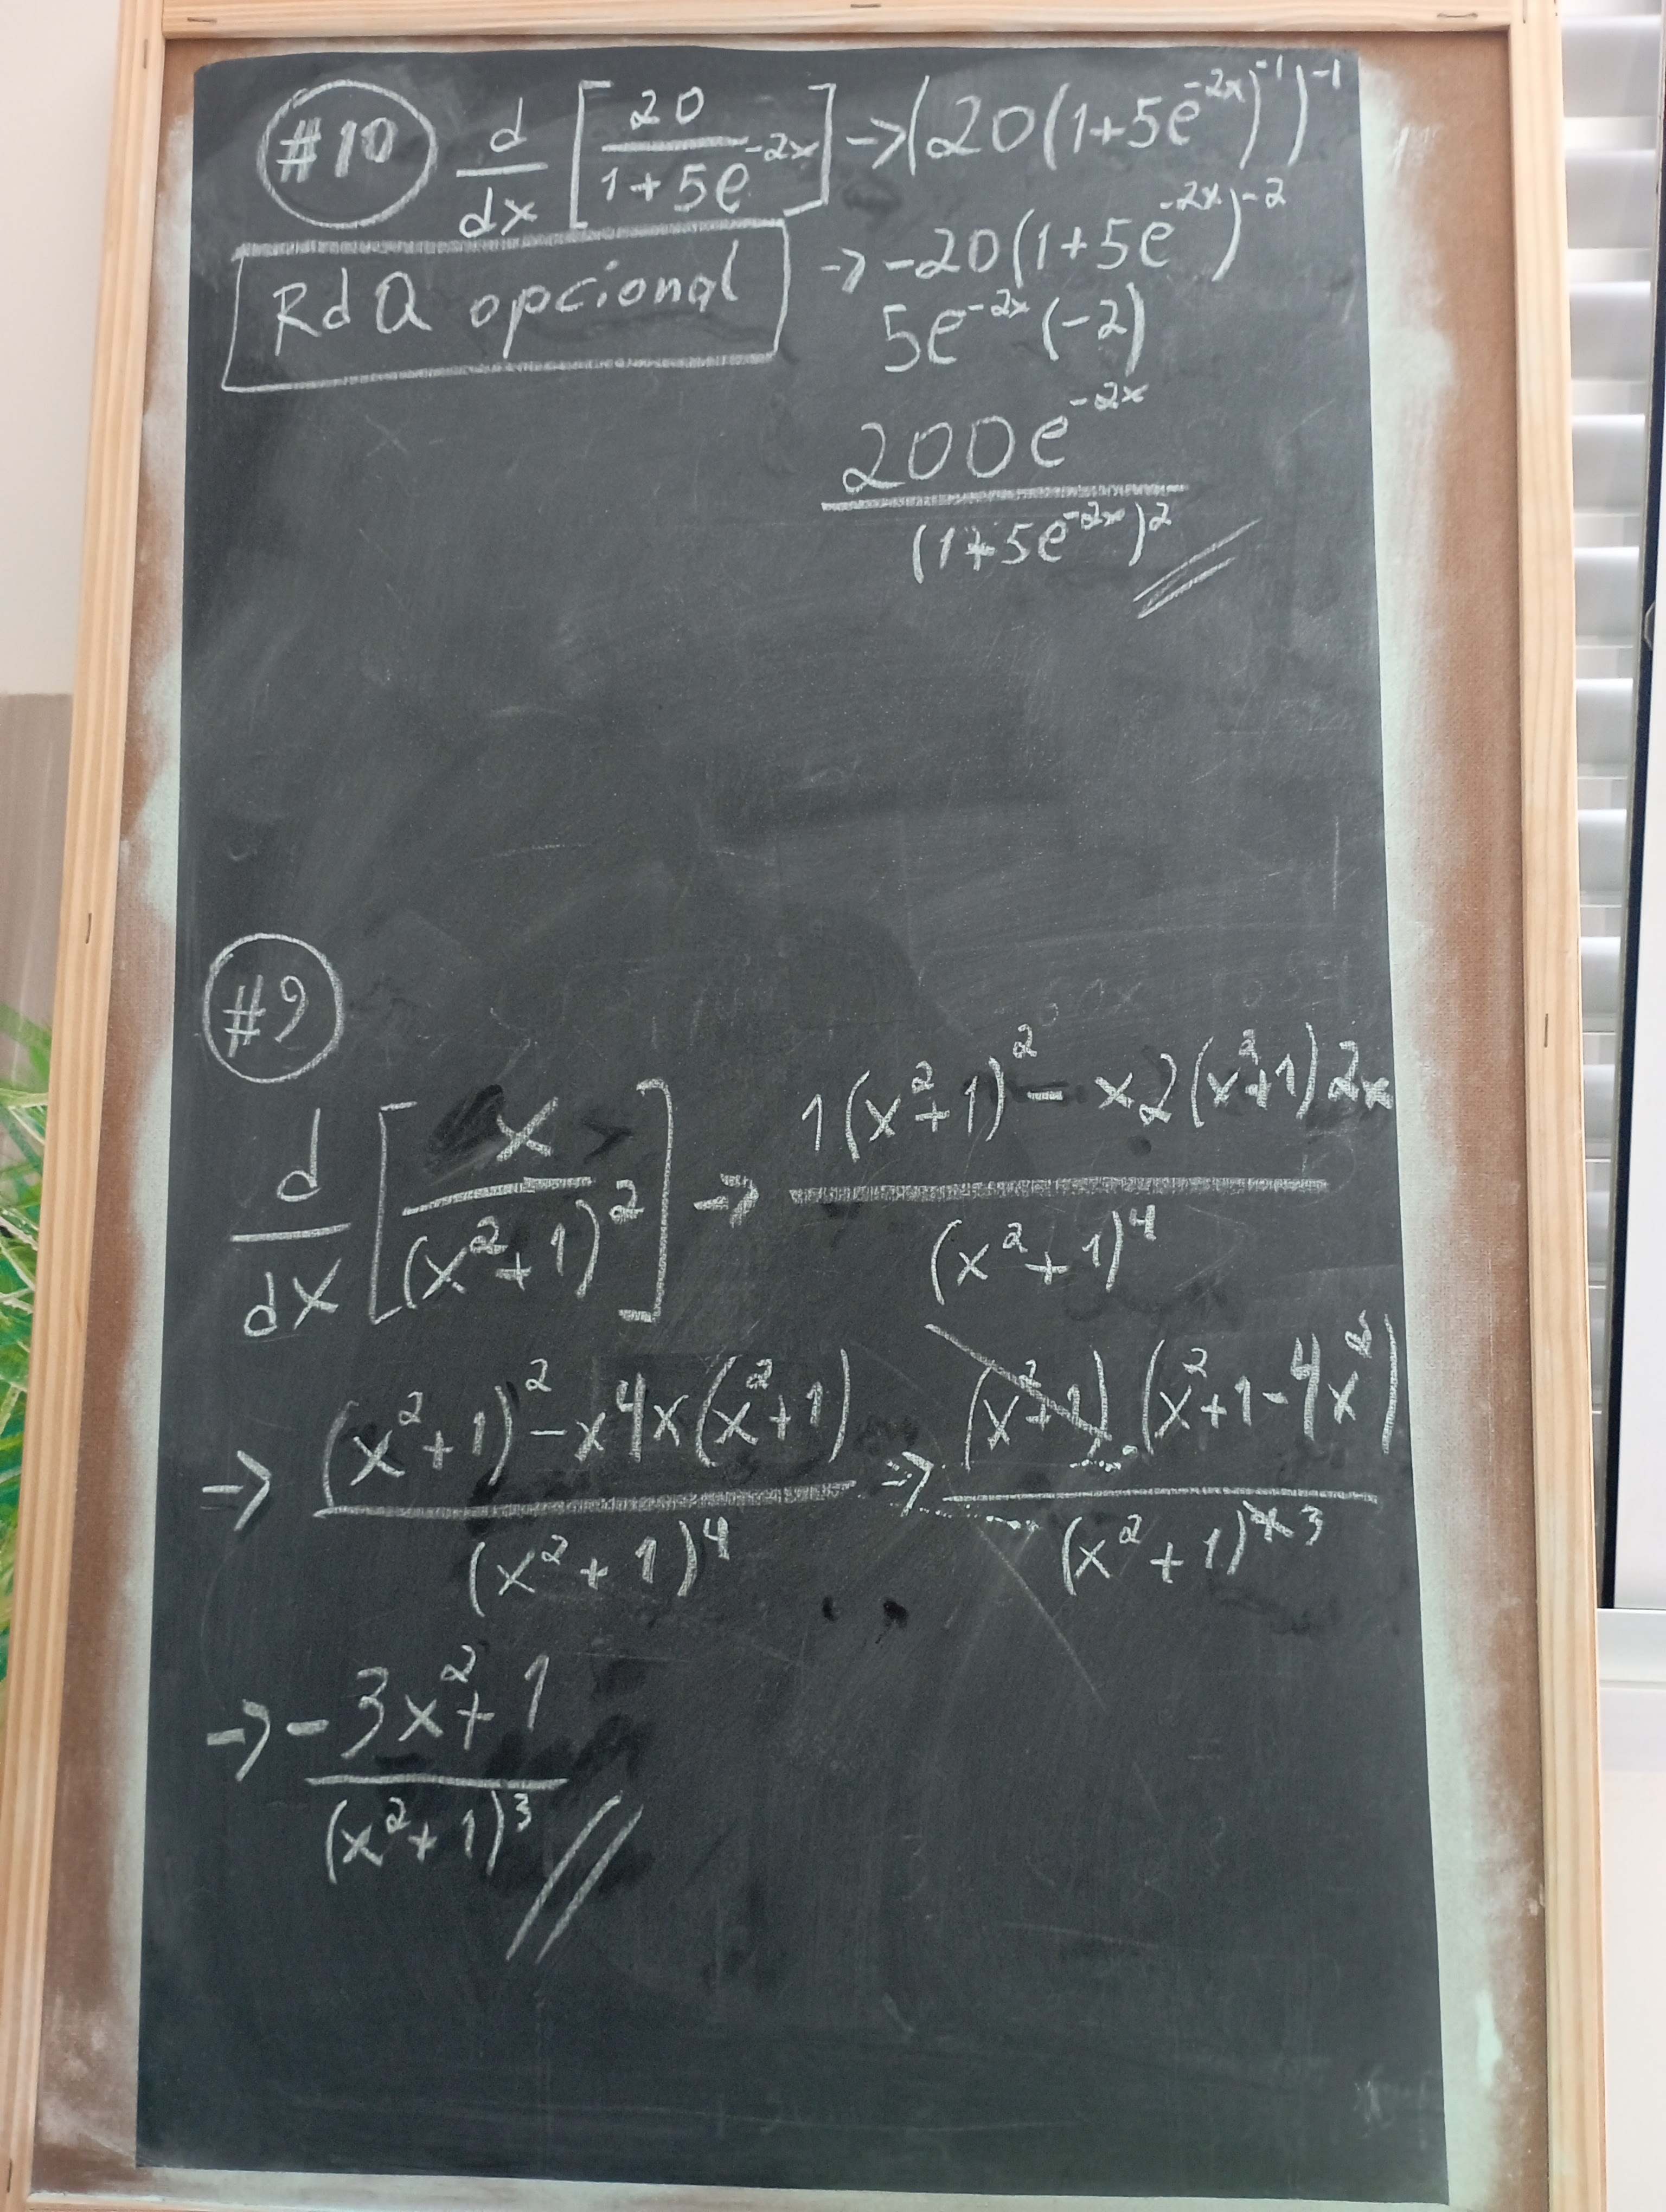 #10 d/dx [20/(1+5e^(-2x))] -> (20(1+5e^(-2x))^(-1))^(-1)
RdQ opcional
-> -20(1+5e^(-2x))^(-2)
5e^(-2x) (-2)
200e^(-2x)/(1+5e^(-2x))^2
#9
d/dx [x/(x^2+1)^2] -> (1(x^2+1)^2 - x2(x^2+1)2x)/(x^2+1)^4
-> ((x^2+1)^2 - x4x(x^2+1))/(x^2+1)^4 -> ((x^2+1)·(x^2+1-4x^2))/(x^2+1)^(4 3)
-> (-3x^2+1)/(x^2+1)^3